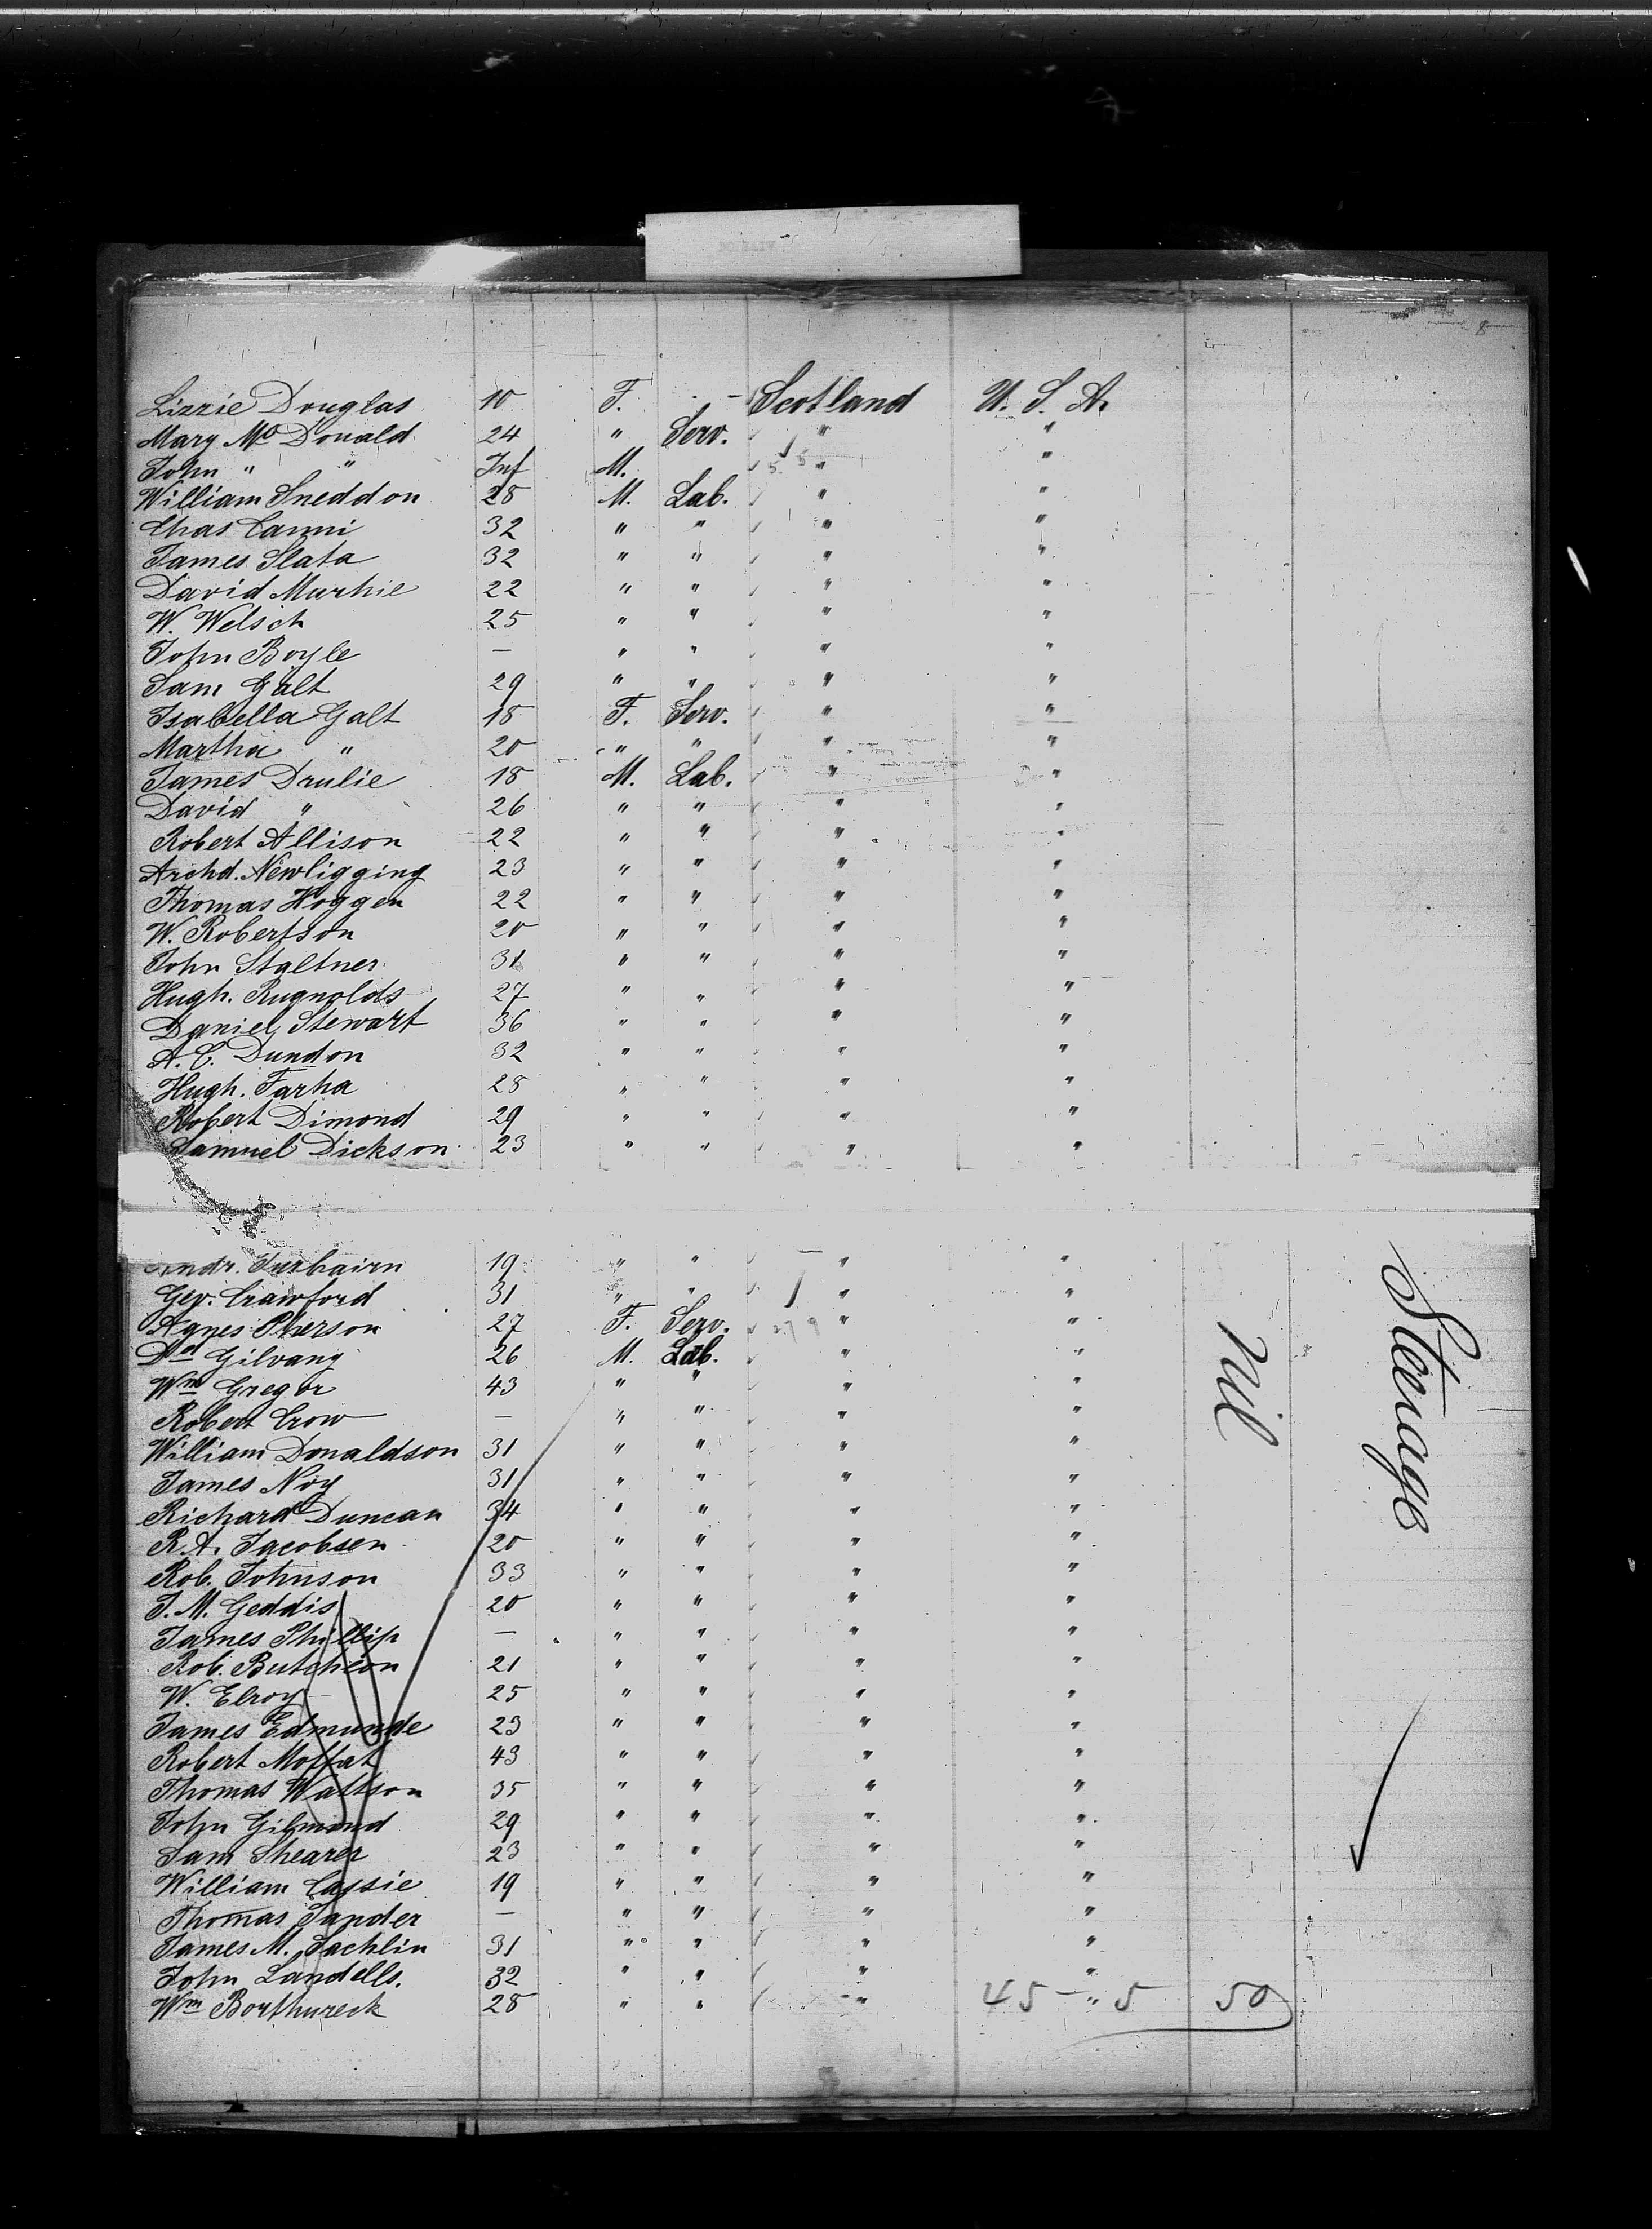 Lizzie Douglas 10 F. - Scotland U. S. A.
Mary Mc Donald 24 " Serv. " "
John " " Inf M. " "
William Sneddon 28 M. Lab. " "
Chas Canni 32 " " " "
James Slata 32 " " " "
David Murhie 22 " " " "
W. Welsch 25 " " " "
John Boyle — " " " "
Sam Galt 29 " " " "
Isabella Galt 18 F. Serv. " "
Martha " 20 " " " "
James Drulie 18 M. Lab. " "
David " 26 " " " "
Robert Allison 22 " " " "
Archd. Newligging 23 " " " "
Thomas Hoggen 22 " " " "
W. Robertson 20 " " " "
John Staltner 31 " " " "
Hugh. Rugnolds 27 " " " "
Daniel Stewart 36 " " " "
A. C. Dundon 32 " " " "
Hugh. Farha 28 " " " "
Robert Dimond 29 " " " "
Samuel Dickson 23 " " " "
Andr. Furbairn 19 " " " "
Geo. Crawford 31 " " " "
Agnes Pherson 27 F. Serv. " "
Dd Gilvang 26 M. Lab. " "
Wm Gregor 43 " " " "
Robert Crow — " " " "
William Donaldson 31 " " " "
James Noy 31 " " " "
Richard Duncan 34 " " " "
R. A. Jacobsen 20 " " " "
Rob. Johnson 33 " " " "
J. M. Geddis 20 " " " "
James Phillip — " " " "
Rob. Butcheon 21 " " " "
W. Elroy 25 " " " "
James Edmunde 23 " " " "
Robert Moffat 43 " " " "
Thomas Wattson 35 " " " "
John Gilmond 29 " " " "
Sam Shearer 23 " " " "
William Cassie 19 " " " "
Thomas Sander — " " " "
James M. Lachlin 31 " " " "
John Landells. 32 " " " "
Wm Borthureck 28 " " " 45 - " 5 50
nil
Steerage